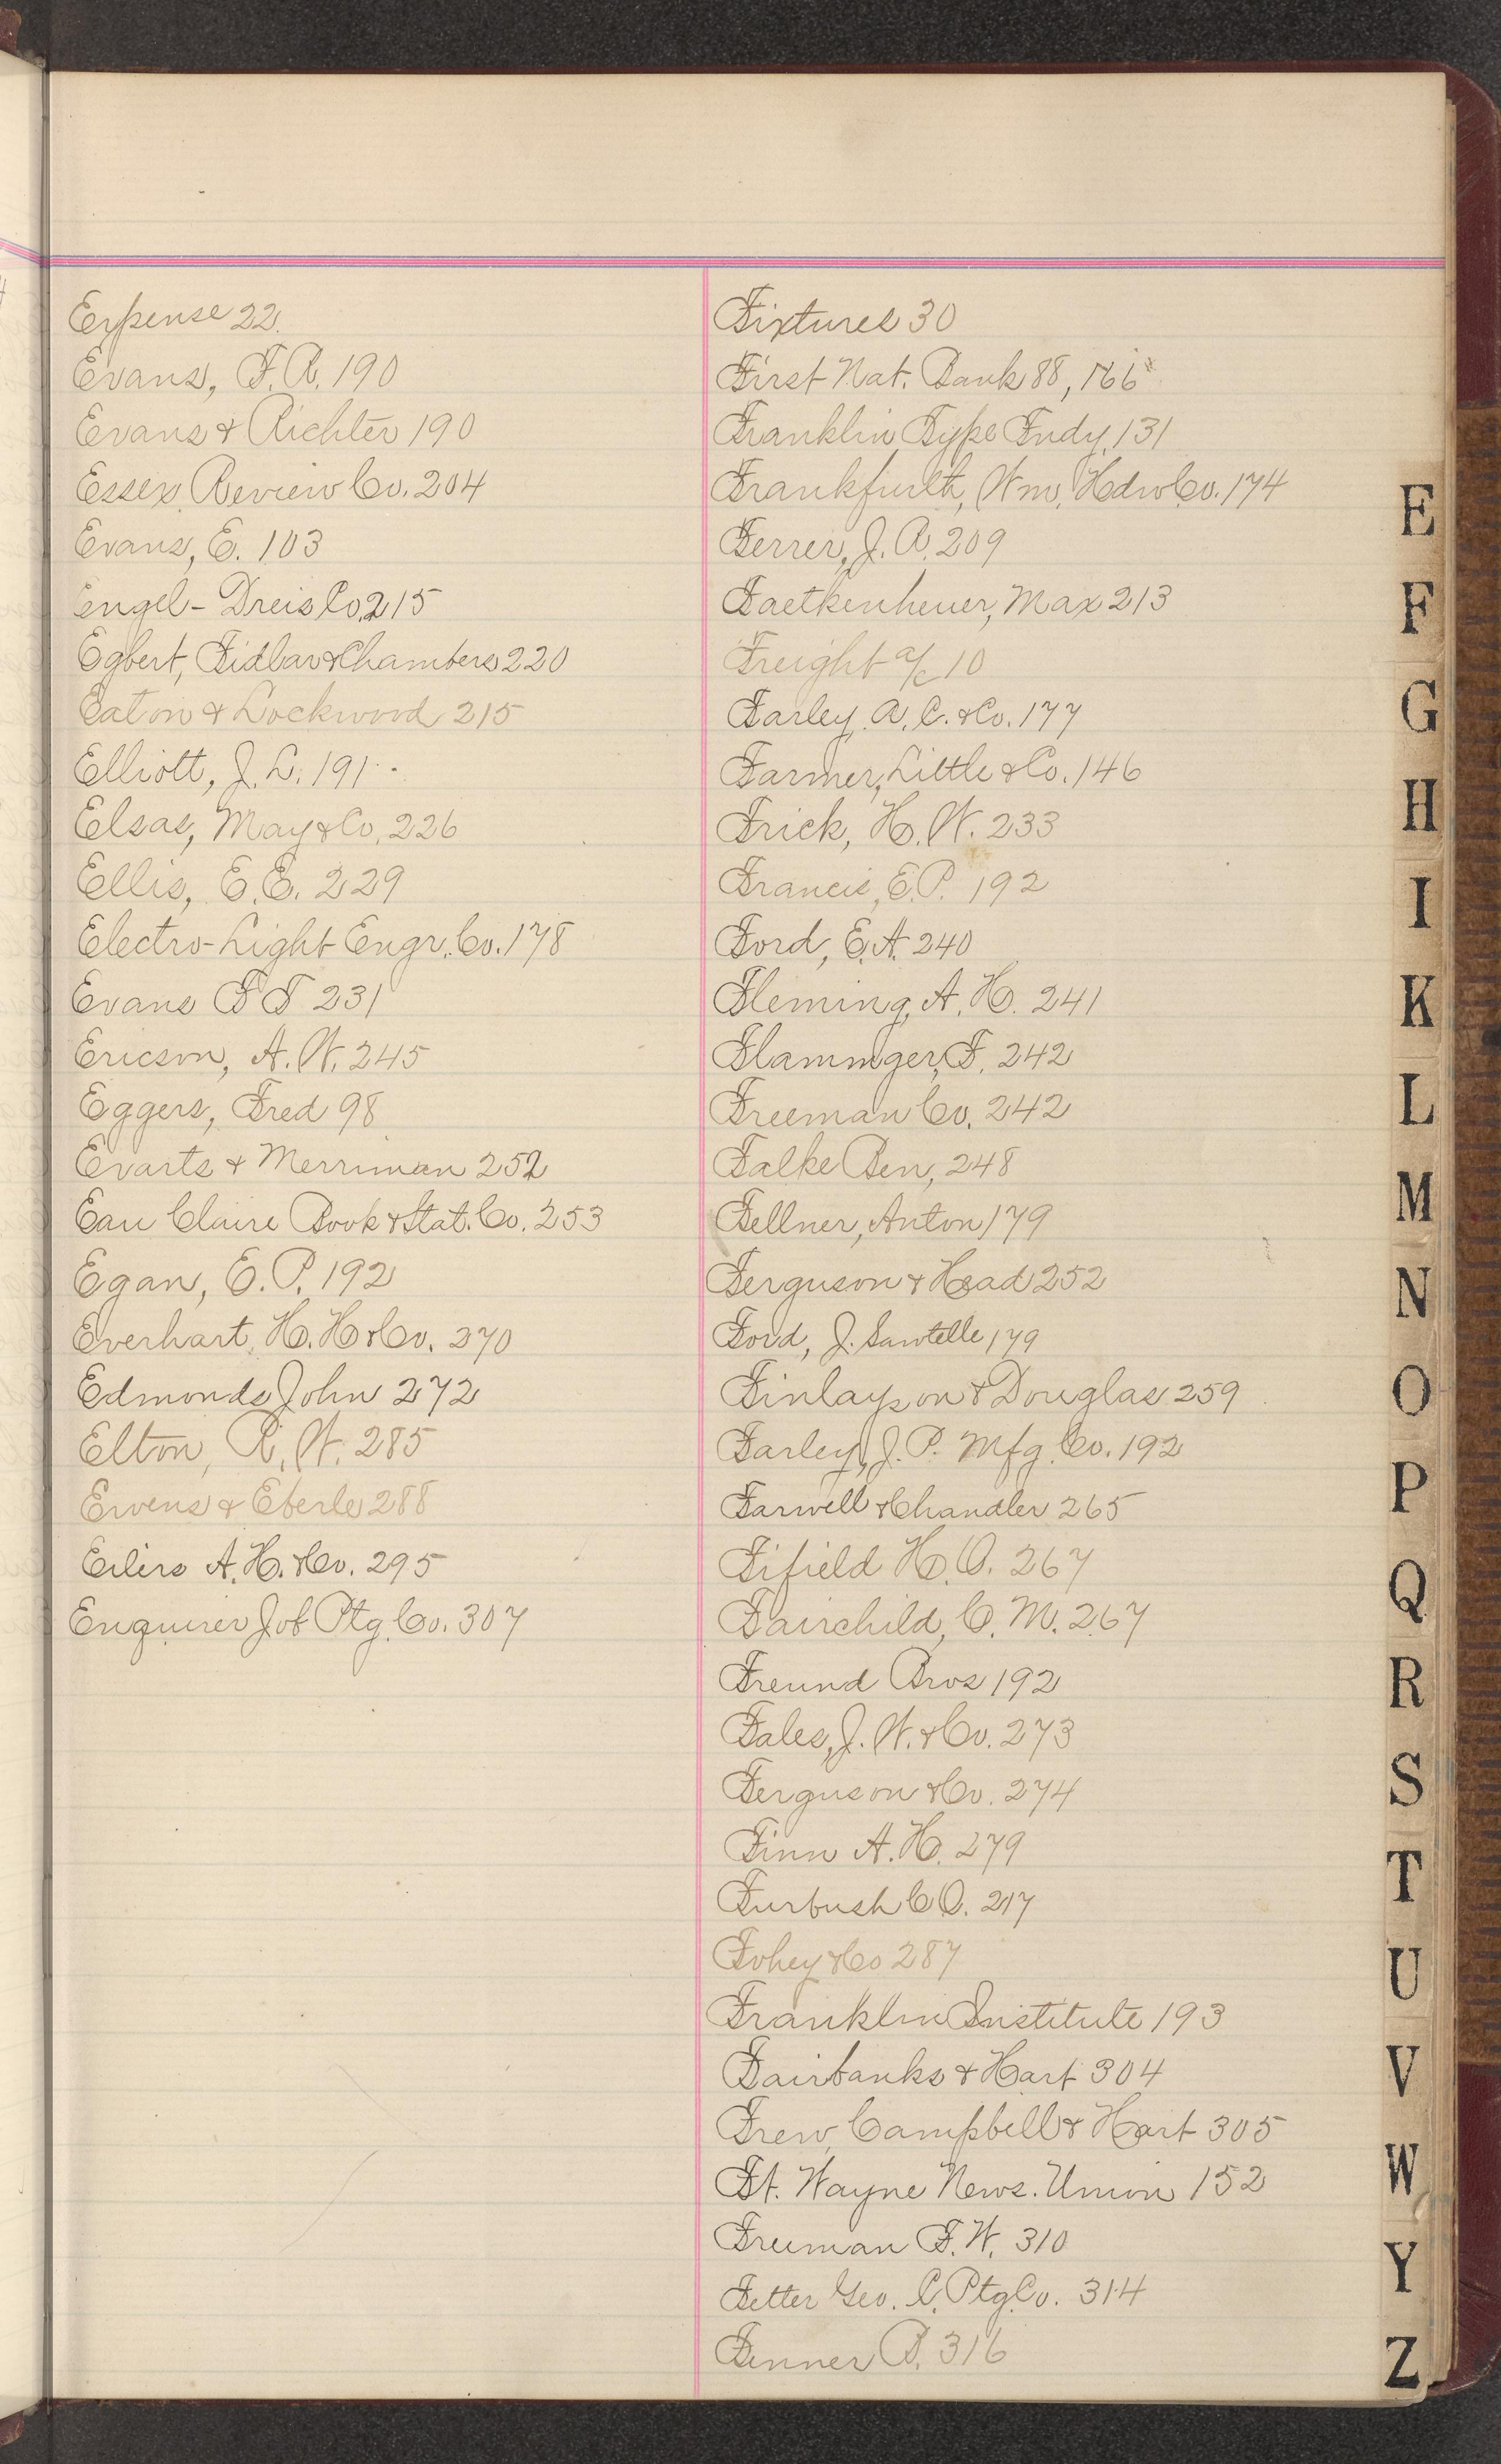 Expense 22.
Evans, F. R. 190
Evans & Richter 190
Essex Review Co. 204
Evans, E. 103
Engel-Dreis Co. 215
Egbert, Fidlar & Chambers 220
Eaton & Lockwood 215
Elliott, J. L. 191
Elsas, May & Co. 226
Ellis, E. E. 229
Electro-Light Engr. Co. 178
Evans F F 231
Ericson, A. W. 245
Eggers, Fred 98
Evarts & Merriman 252
Eau Claire Book & Stat. Co. 253
Egan, E. P. 192
Everhart, H. H. & Co. 270
Edmonds John 272
Elton, R. W. 285
Ervens & Eberle 288
Eilers A. H. & Co. 295
Enquirer Job Ptg. Co. 307
Fixtures 30
First Nat. Bank 88, 166
Franklin Type Fndy. 131
Frankfurth, Wm. Hdw Co. 174
Ferrer, J. R. 209
Faetkenheuer, Max 213
Freight a/c 10
Farley, A. C. & Co. 177
Farmer, Little & Co. 146
Frick, H. W. 233
Francis, E. P. 192
Ford, E. A. 240
Fleming, A. H. 241
Flammger, F. 242
Freeman Co. 242
Falke Ben, 248
Fellner, Anton 179
Ferguson & Head 252
Ford, J. Sawtelle 179
Finlayson & Douglas 259
Farley, J. P. Mfg. Co. 192
Farwell & Chandler 265
Fifield H. O. 267
Fairchild, C. M. 267
Freund Bros 192
Fales, J. W. & Co. 273
Ferguson & Co. 274
Finn A. H. 279
Furbush C O. 217
Fohey & Co 287
Franklin Institute 193
Fairbanks & Hart 304
Frew, Campbell & Hart 305
Ft. Wayne News. Union 152
Freeman F. W. 310
Fetter Geo. C. Ptg Co. 314
Fenner B. 316
E
F
G
H
I
K
L
M
N
O
P
Q
R
S
T
U
V
W
Y
Z